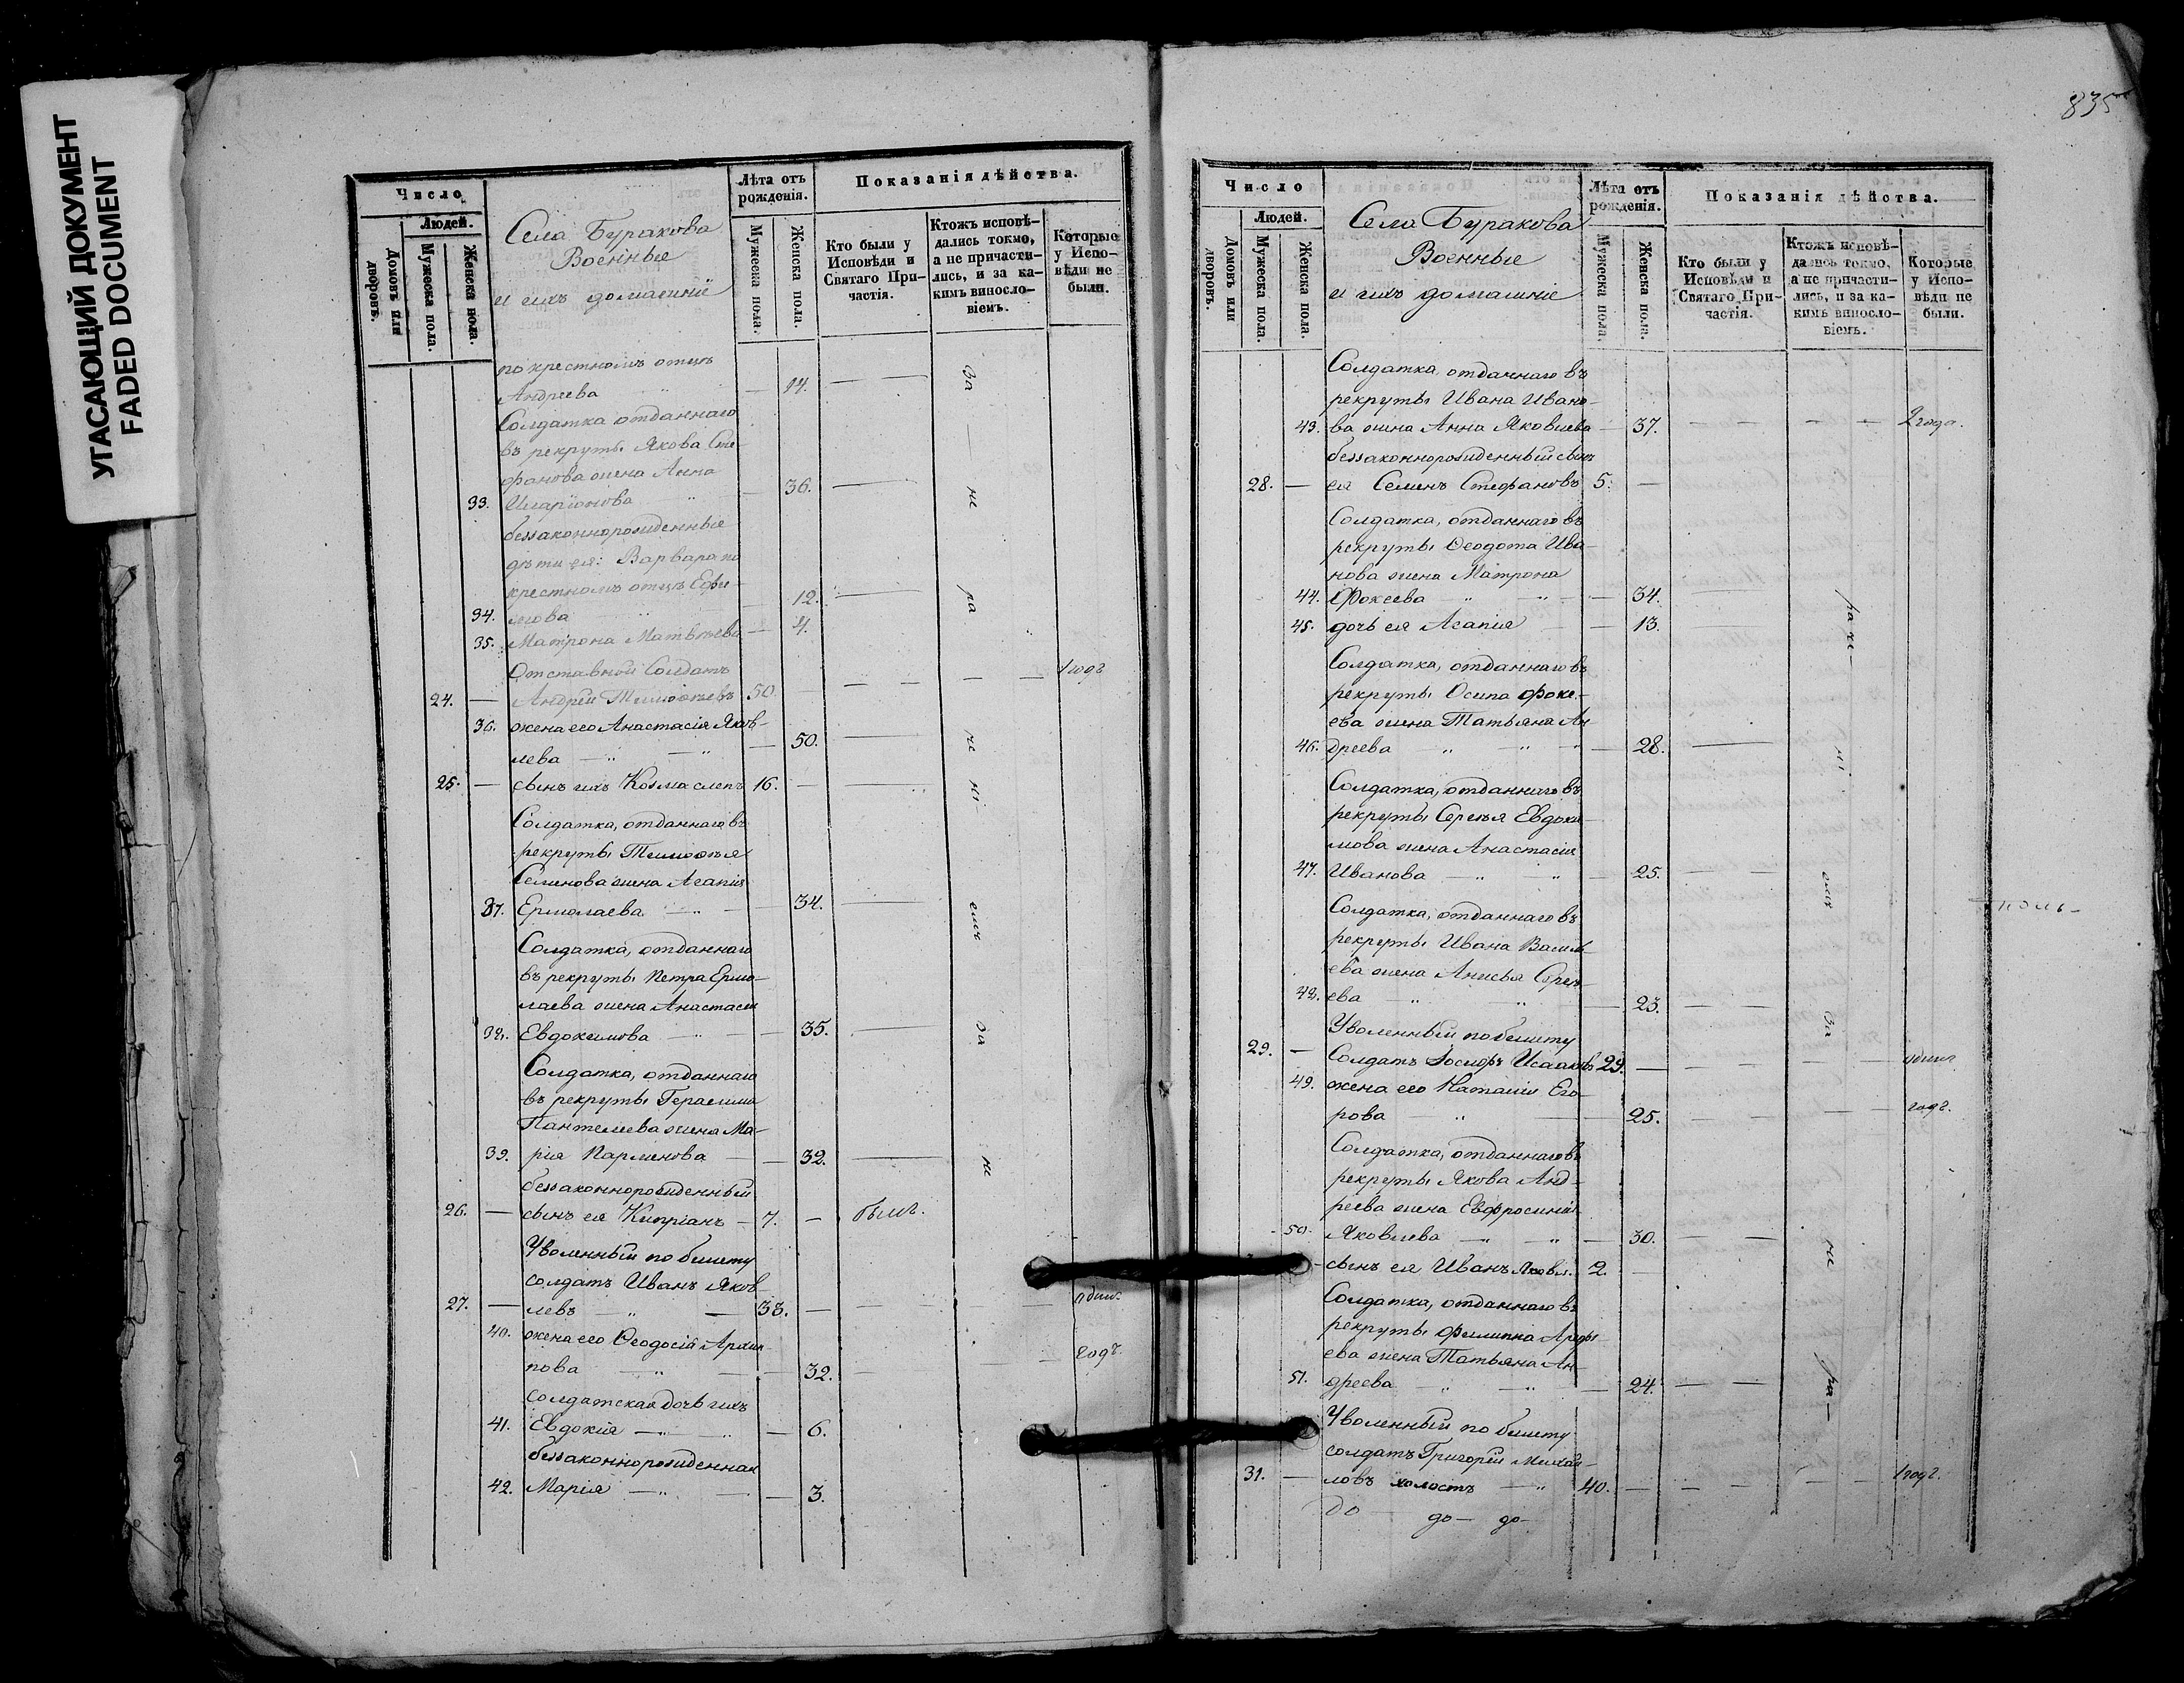 УГАСАЮЩИЙ ДОКУМЕНТ
FADED DOCUMENT
Число
Людей.
Домовъ или дворовъ.
Мужеска пола.
Женска пола.
Села Буракова
Военные
и ихъ домашнiе
Лѣта отъ рожденiя.
Мужеска пола.
Женска пола.
Показанiя дѣйства.
Кто были у Исповѣди и Святаго Причастiя.
Ктожъ исповѣ-
дались токмо,
а не причасти-
лись, и за ка-
кимъ винослo-
вiемъ.
Которые
у Испо-
вѣди не
были.
по крестномъ отцѣ
Андреева — 14. —
Солдатка отданнаго
въ рекруты Якова Сте-
фанова жена Анна
33. Иларiонова — 36. —
беззаконнорожденные
дѣти ея: Варвара по
крестномъ отцѣ Ефи-
34. мова — 12. —
35. Матрона Матвѣева — 4.
Отставной Солдатъ
24. — Андрей Тимофѣевъ 50. — — — — — 1 годъ
36. жена его Анастасiя Яков-
лева — " — " — 50. —
25. — сынъ ихъ Козма слепъ 16. — —
Солдатка, отданнаго въ
рекруты Тимофѣя
Семенова жена Агапiя
37. Ермолаева — " — 34. —
Солдатка, отданнаго
въ рекруты Петра Ермо-
лаева жена Анастасiя
38. Евдокимова — " — 35. —
Солдатка, отданнаго
въ рекруты Герасима
Пантелеева жена Ма-
39. рiя Парменова — — 32. —
беззаконнорожденный
26. — сынъ ея Кипрiанъ — 7. — былъ.
Уволенный по билету
солдатъ Иванъ Яков-
27. — левъ — " — 38. — — — — одинъ
40. жена его Ѳеодосiя Архип-
пова — " — — 32. — — годъ.
солдатская дочь ихъ
41. Евдокiя — " — " — 6.
беззаконнорожденная
42. Марiя — " — — 3.
За
не
ра
че
нi
емъ
За
не
835
Число
Людей.
Домовъ или дворовъ.
Мужеска пола.
Женска пола.
Села Буракова
Военные
и ихъ домашнiе
Лѣта отъ рожденiя.
Мужеска пола.
Женска пола.
Показанiя дѣйства.
Кто были у
Исповѣди и
Святаго При-
частiя.
Ктожъ исповѣ-
дались токмо,
а не причасти-
лись, и за ка-
кимъ винослo-
вiемъ.
Которые
у Испо-
вѣди не
были.
Солдатка, отданнаго въ
рекруты Ивана Ивано-
43. ва жена Анна Яковлева — 37. — — — — 2 года.
беззаконнорожденный сынъ
28. — ея Семенъ Стефановъ 5. —
Солдатка, отданнаго въ
рекруты Ѳеодота Ива-
нова жена Матрона
44. Фокеева " " — 34. —
45. дочь ея Агапiя — — 13.
Солдатка, отданнаго въ
рекруты Осипа Фоке-
ева жена Татьяна Ан-
46. дреева — " — " — 28. —
Солдатка, отданнаго въ
рекруты Сергѣя Евдоки-
мова жена Анастасiя
47. Иванова — " — " — 25. — —
Солдатка, отданнаго въ
рекруты Ивана Василь-
ева жена Анисья Сергѣ-
48. ева — " — " — 23. — —
Уволенный по билету
29. — Солдатъ Iосифъ Исааковъ 29. — — — — — одинъ
49. жена его Наталiя Его-
рова — " — 25. — — — — годъ.
Солдатка, отданнаго въ
рекруты Якова Анд-
реева жена Евфросинiя
50. Яковлева — " — " — 30. — —
сынъ ея Иванъ Яковл. 2. —
Солдатка, отданнаго въ
рекруты Филиппа
ева жена Татьяна Ан-
51. дреева — " — " — 24. — —
Уволенный по билету
солдатъ Григорiй Михай-
31. — ловъ холостъ — " 40. — — — — — 1 годъ.
до — до — до —
ра че-
нi
емъ
За
не
ра —